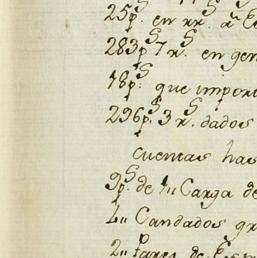 25p.s en rr. a
283p.s 7 r.s en gen
18p.s que import
296p.s 3 r.s dados
cuentas has
9p.s de 1" Carga de
4" Candados gr
2" Pares de